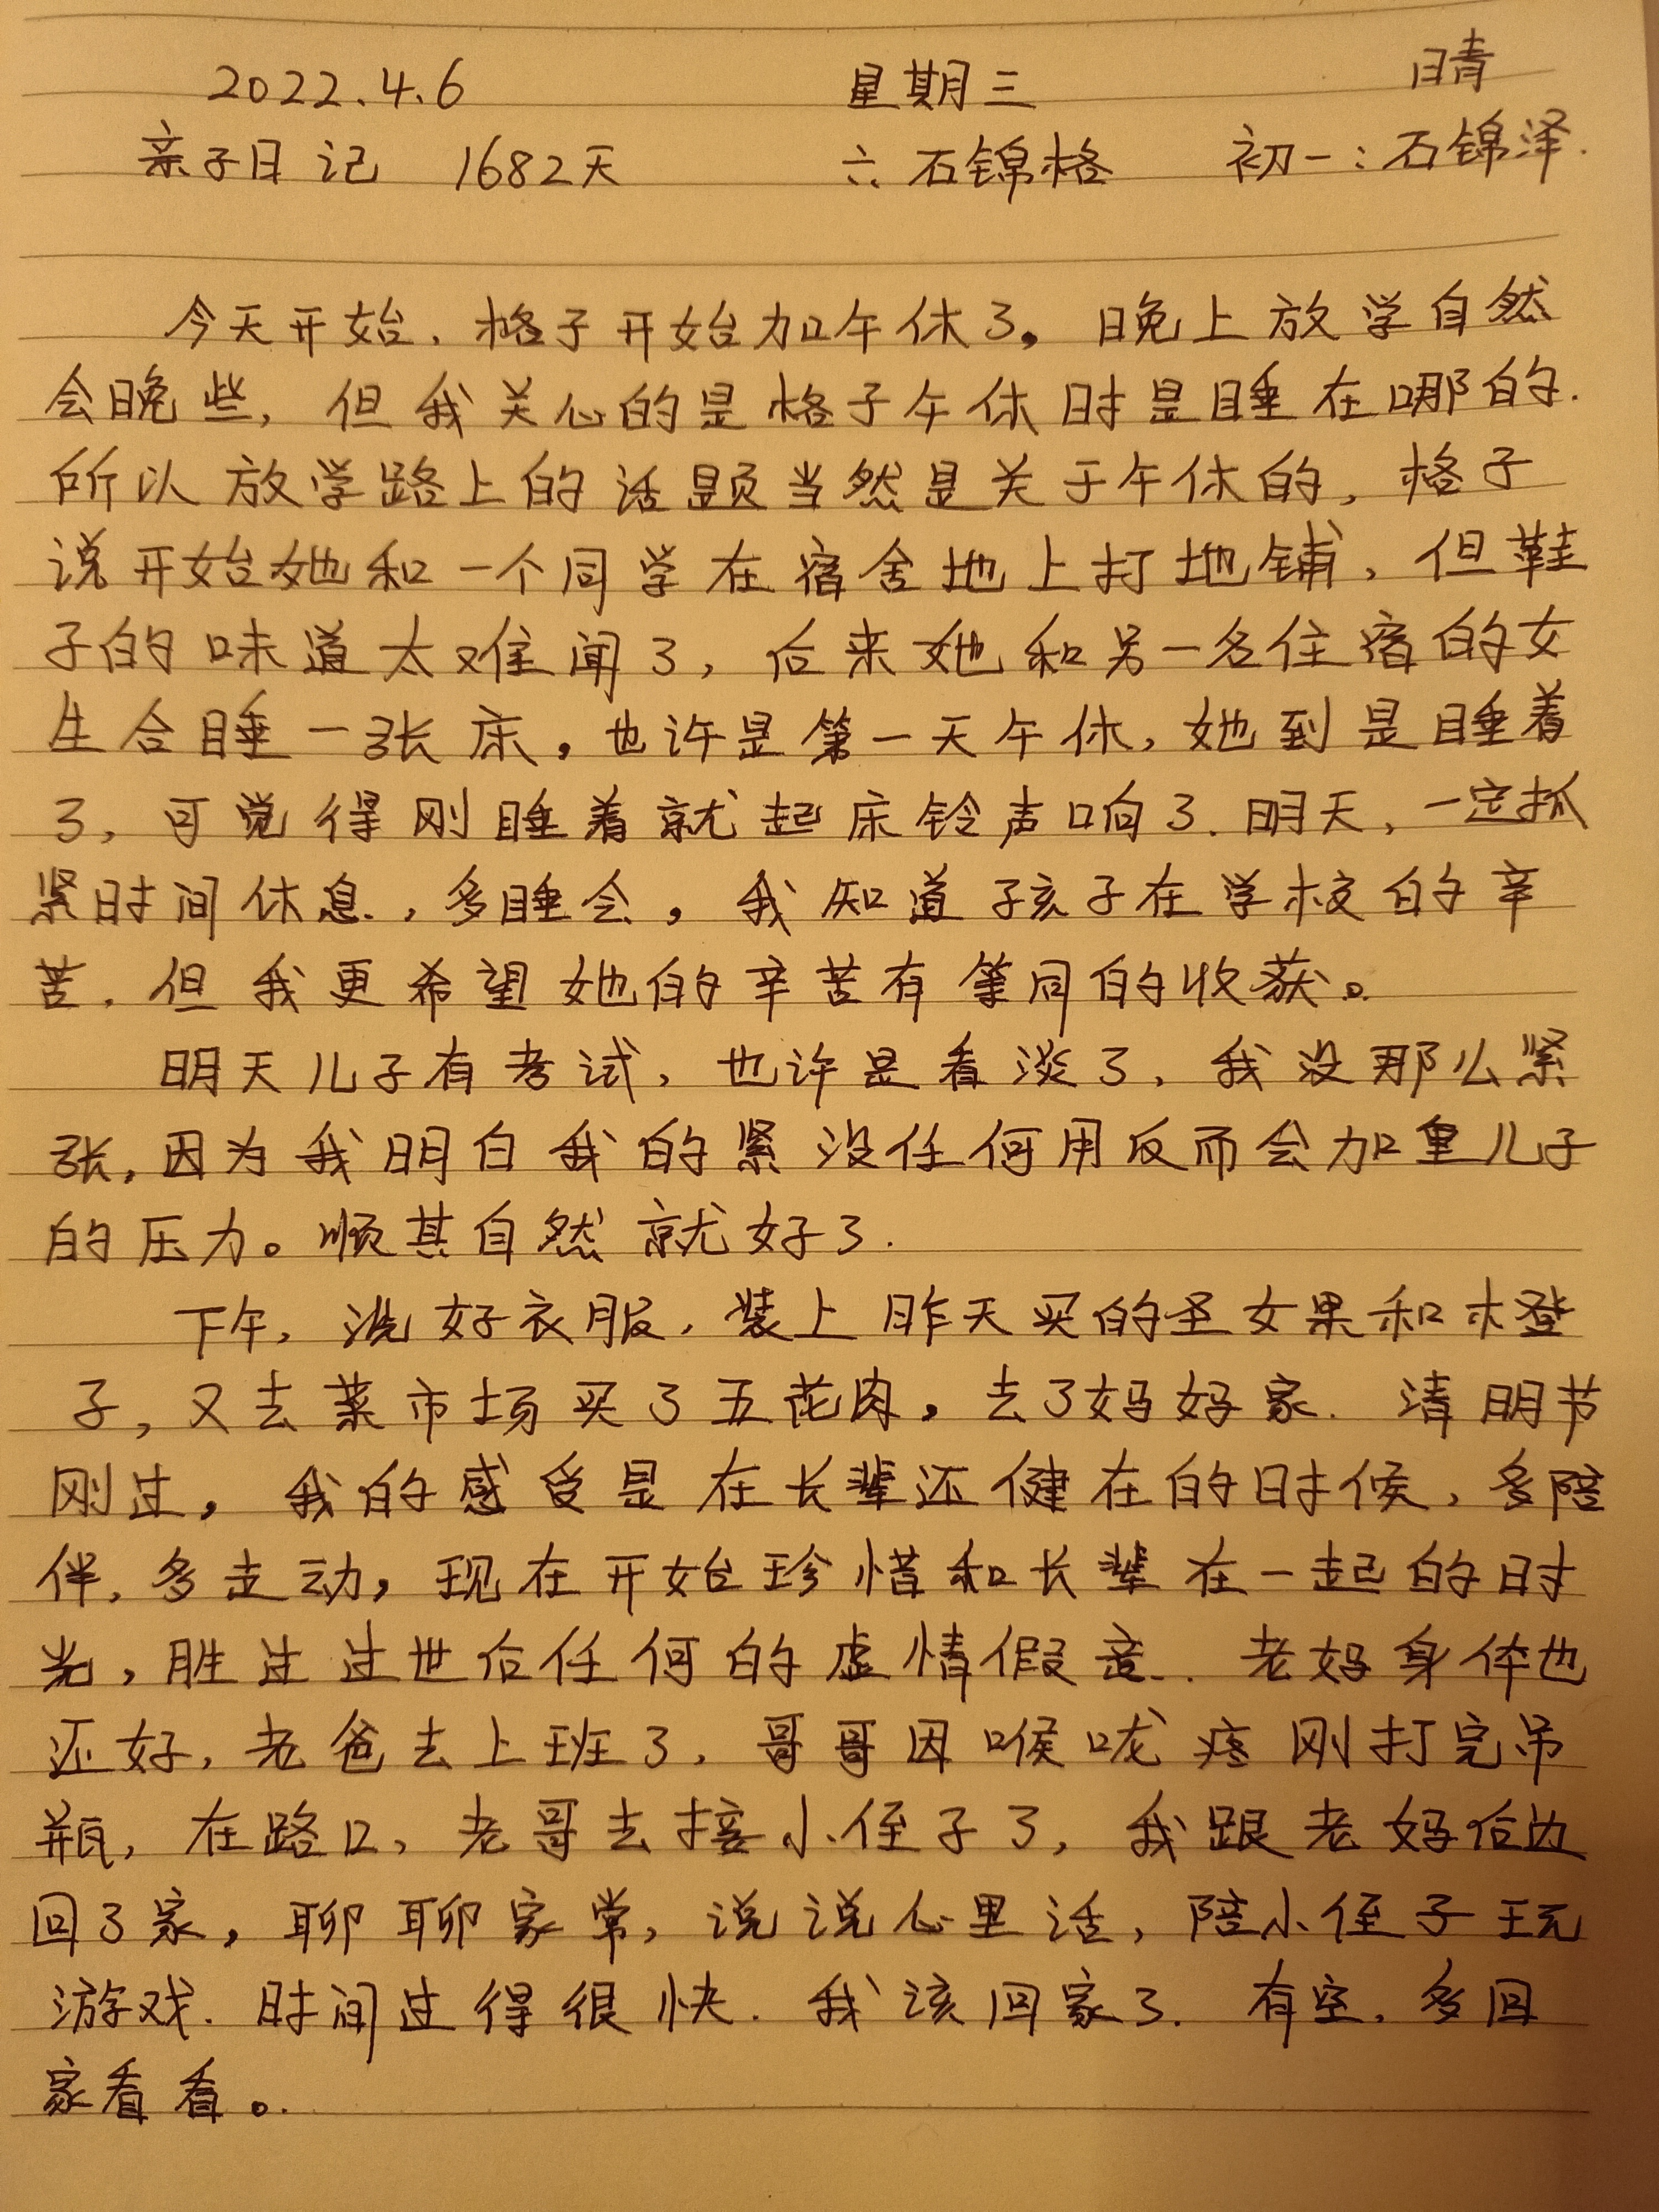 2022.4.6 星期三 晴
亲子日记 1682天 六:石锦格 初一:石锦泽.
今天开始,格子开始加午休了。晚上放学自然
会晚些,但我关心的是格子午休时是睡在哪的.
所以放学路上的话题当然是关于午休的,格子
说开始她和一个同学在宿舍地上打地铺,但鞋
子的味道太难闻了,后来她和另一名住宿的女
生合睡一张床,也许是第一天午休,她到是睡着
了,可觉得刚睡着就起床铃声响了.明天,一定抓
紧时间休息,多睡会,我知道孩子在学校的辛
苦,但我更希望她的辛苦有等同的收获。
明天儿子有考试,也许是看淡了,我没那么紧
张,因为我明白我的紧没任何用反而会加重儿子
的压力。顺其自然就好了.
下午,洗好衣服,装上昨天买的圣女果和橙
子,又去菜市场买了五花肉,去了妈妈家.清明节
刚过,我的感受是在长辈还健在的时候,多陪
伴,多走动,现在开始珍惜和长辈在一起的时
光,胜过过世后任何的虚情假意.老妈身体也
还好,老爸去上班了,哥哥因喉咙疼刚打完吊
瓶,在路口,老哥去接小侄子了,我跟老妈后边
回了家,聊聊家常,说说心里话,陪小侄子玩
游戏.时间过得很快.我该回家了.有空,多回
家看看。